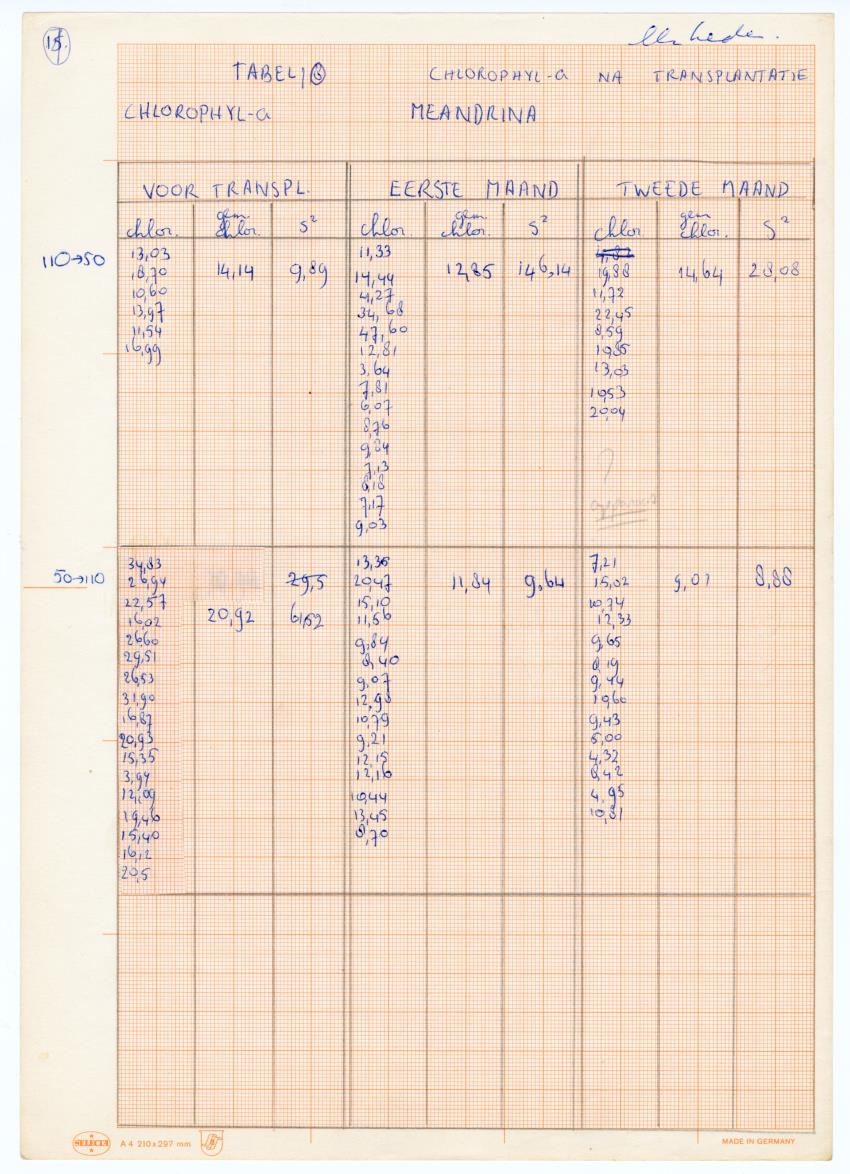 15.
eenheden.
TABEL 16 CHLOROPHYL-a NA TRANSPLANTATIE
CHLOROPHYL-a MEANDRINA
VOOR TRANSPL. EERSTE MAAND TWEEDE MAAND
chlor. gem. chlor. S² chlor. gem. chlor. S² chlor gem chlor. S²
110→50
13,03
18,70
10,60
13,97
11,54
16,99
14,14 9,89
11,33
14,44
4,27
34,68
47,60
12,81
3,64
7,81
6,07
8,76
9,84
7,13
8,18
7,17
9,03
12,85 146,14
19,88
11,72
22,45
8,59
10,85
13,03
10,53
20,04
?
14,64 28,08
50→110
34,83
26,94
22,57
16,02
26,60
29,51
26,53
31,90
16,87
20,93
15,35
3,94
12,09
19,46
15,40
16,12
20,5
29,5
20,92 61,52
13,36
20,47
15,10
11,56
9,84
8,40
9,07
12,90
10,79
9,21
12,15
12,16
10,44
13,45
8,70
11,84 9,64
7,21
15,02
10,74
12,33
9,65
8,19
9,44
10,60
9,43
6,00
4,32
8,42
4,95
10,81
9,07 8,88
SELECTA A4 210x297 mm MADE IN GERMANY